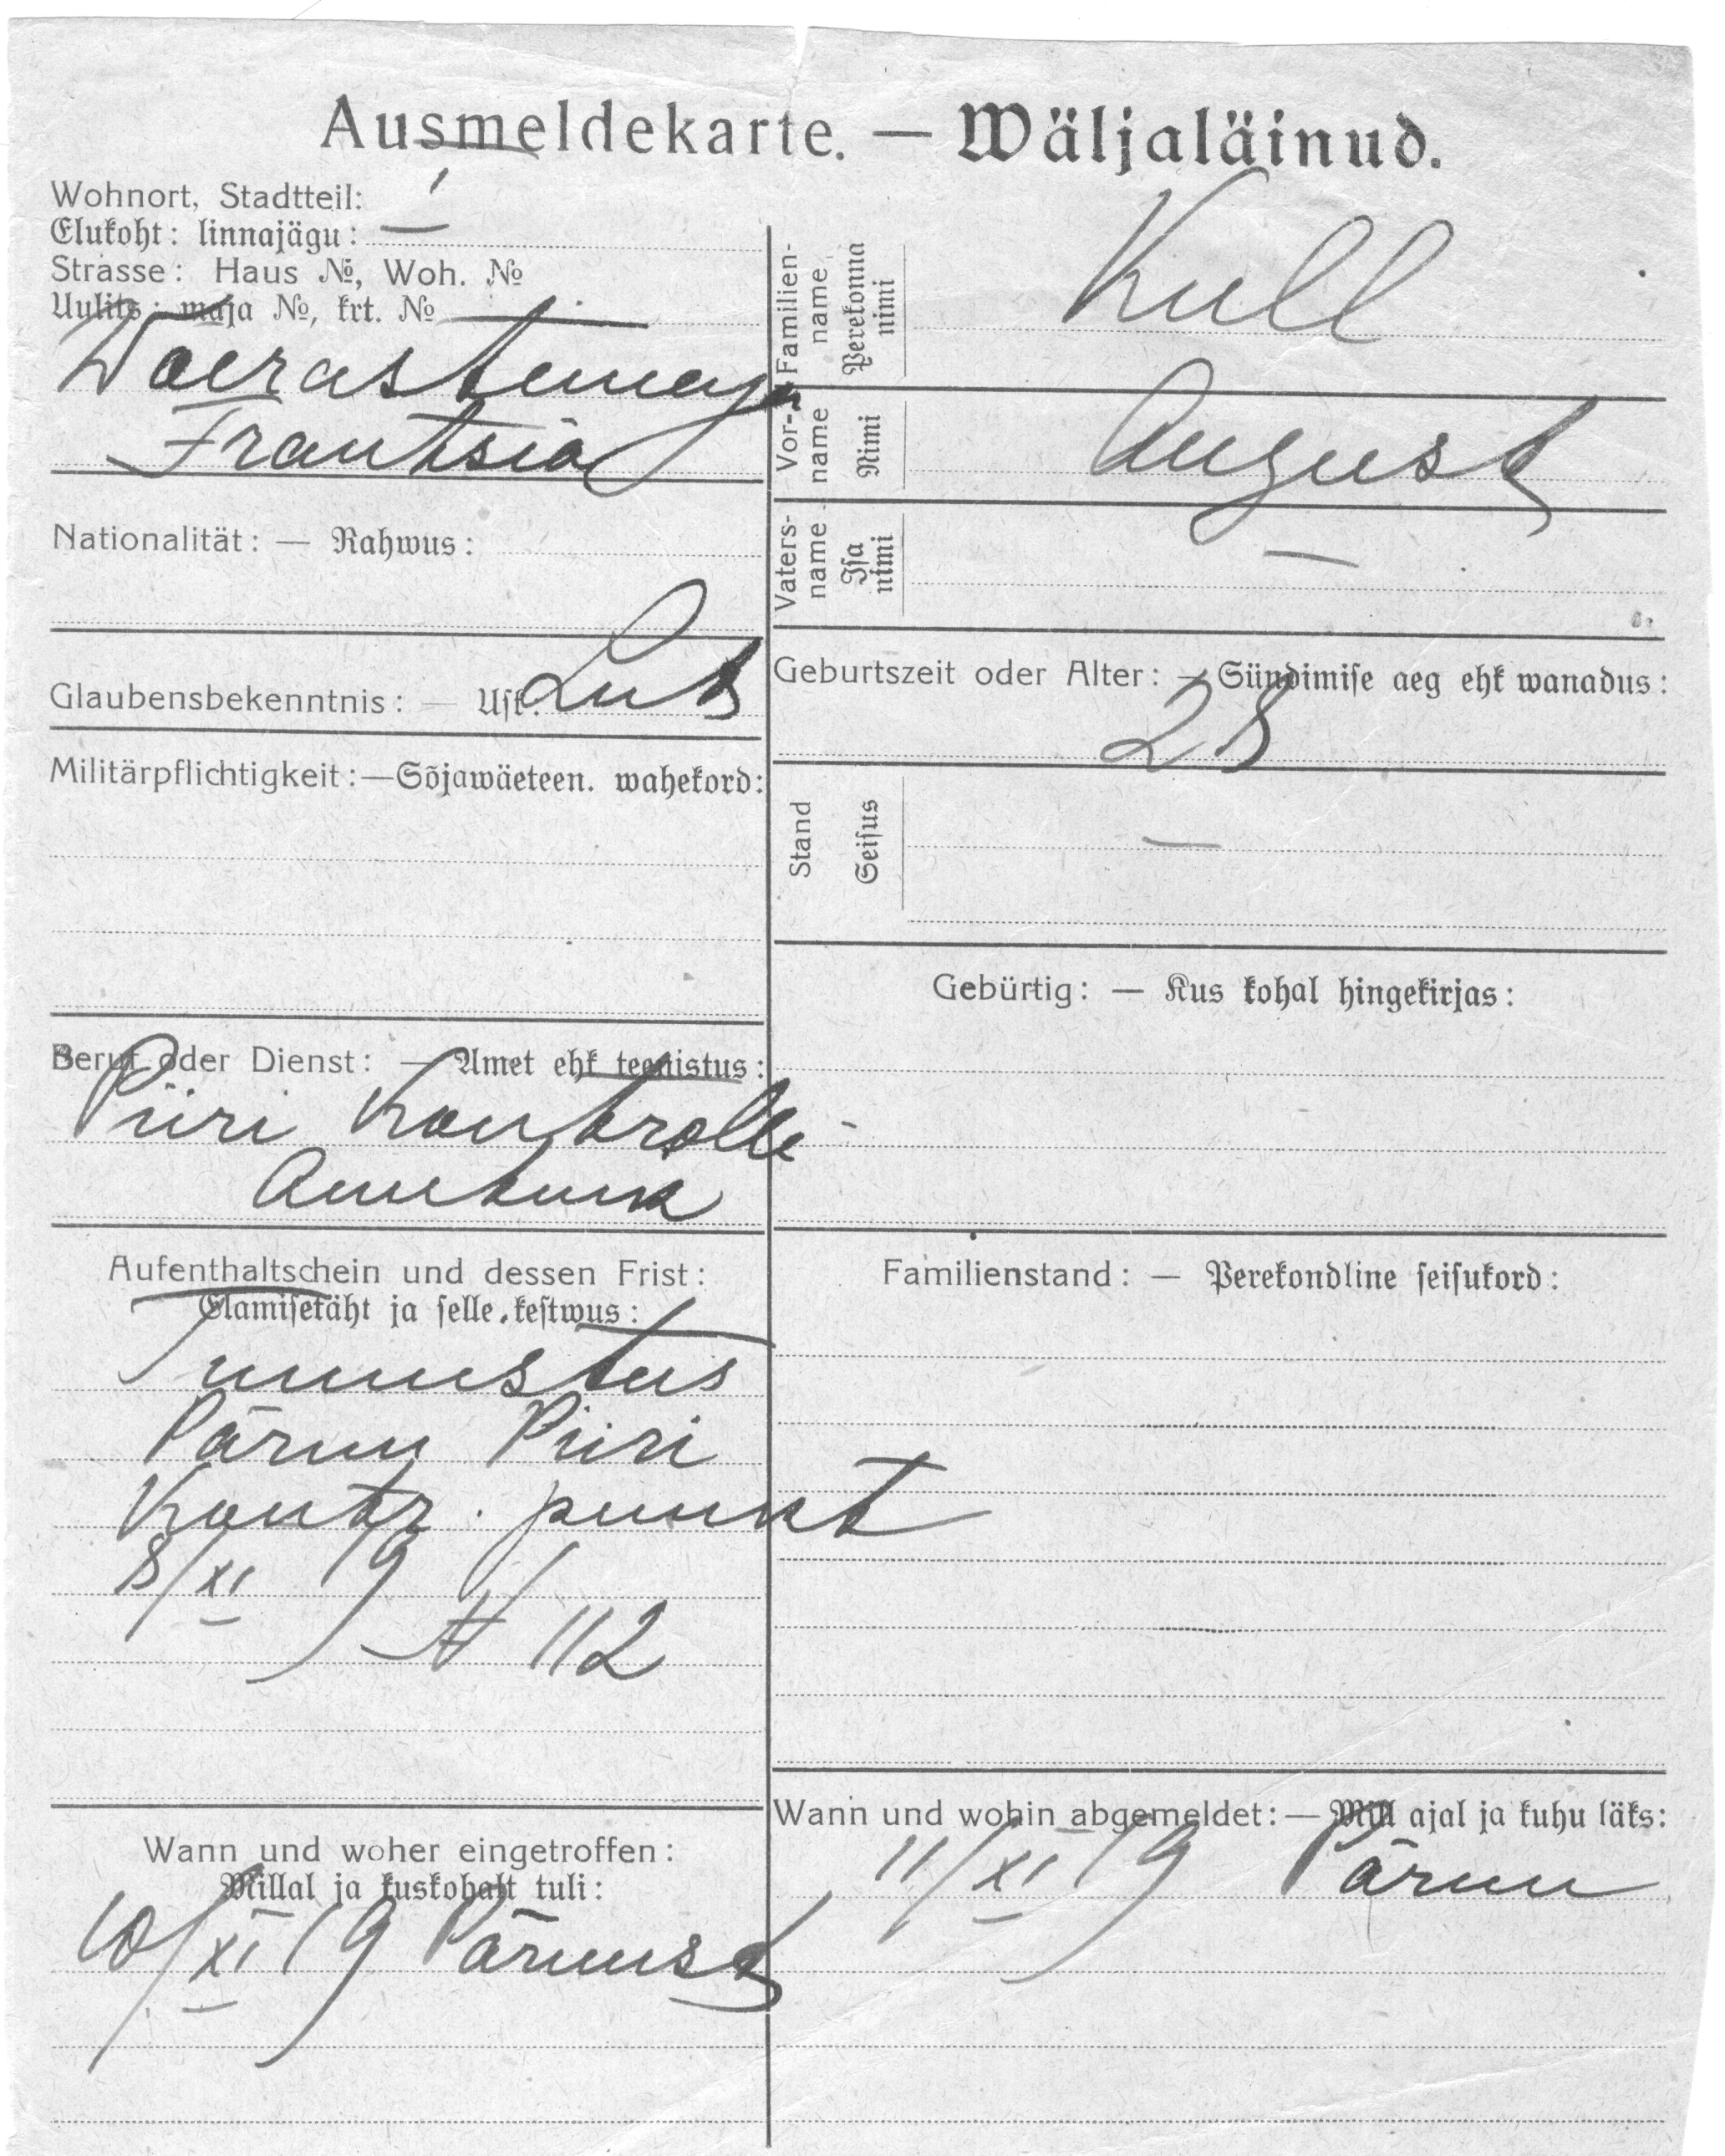 Ausmeldekarte. — Wäljaläinud.
Wohnort, Stadtteil: I
Elukoht: linnajägu:
Strasse: Haus №, Woh. №
Uulits: maja №, krt. №
Woerastemaja
Frantsia
Nationalität: — Rahwus:
Glaubensbekenntnis: — Usk. Lut
Militärpflichtigkeit: — Sõjawäeteen. wahekord:
Beruf oder Dienst: — Amet ehk teenistus:
Piiri Kontrolle
Ametnik
Aufenthaltschein und dessen Frist:
Elamisetäht ja selle kestwus:
Tunnistus
Pärnu Piiri
Kontr. punkt
8/XI 19
№ 112
Wann und woher eingetroffen:
Millal ja kuskohalt tuli:
10/XI 19 Pärnust
Familien-
name
Perekonna
nimi
Kull
Vor-
name
Nimi
August
Vaters-
name
Isa
nimi
—
Geburtszeit oder Alter: — Sündimise aeg ehk wanadus:
28
Stand
Seisus
—
Gebürtig: — Kus kohal hingekirjas:
Familienstand: — Perekondline seisukord:
Wann und wohin abgemeldet: — Mill ajal ja kuhu läks:
11/XI 19 Pärnu